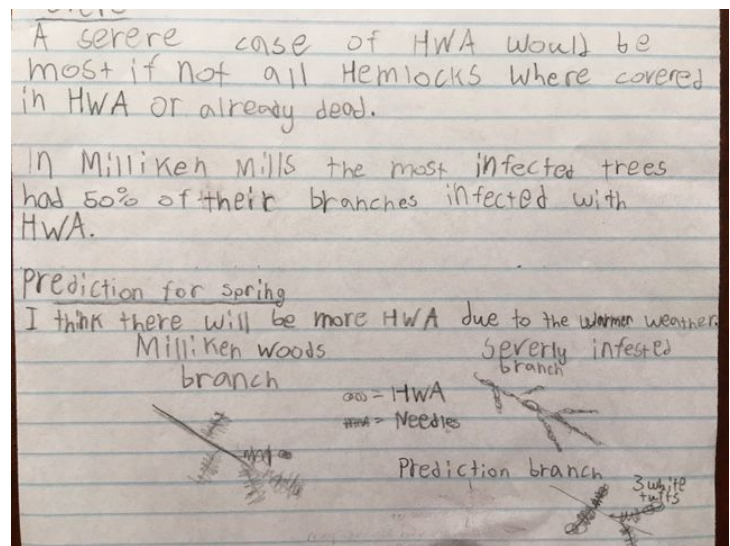 A serere case of HWA would be
most if not all Hemlocks where covered
in HWA or already dead.
In Milliken Mills the most infected trees
had 50% of their branches infected with
HWA.
Prediction for spring
I think there will be more HWA due to the warmer weather.
Milliken woods
branch
Severly infested
branch
= HWA
= Needles
Prediction branch
3 white
tufts